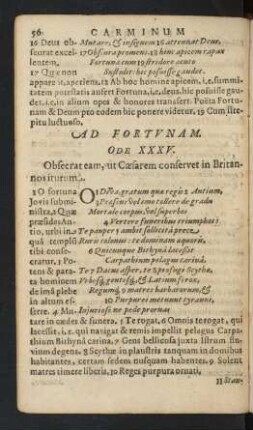 56 CARMINUM
16 Deus ob-
scurat excel-
lentem,
17 Quæ non
Mutare, & insignem 16 attenuat Deus,
17 Obscura promens. 18 hinc apicem rapax
Fortuna cum 19 stridore acuto
Sustulit: hic posuisse gaudet.
apparēt, aperiens. 18 Ab hoc homine apicem, i.e. summi-
tatem potestatis aufert Fortuna, i.e. deus, hic posuisse gau-
det, i.e. in alium opes & honores transfert. Poëta Fortu-
nam & Deum pro eodem hic ponere videtur. 19 Cum stre-
pitu luctuoso.
AD FORTVNAM.
ODE XXXV.
Obsecrat eam, ut Cæsarem conservet in Britan-
nos iturum.
1 O fortuna
Jovis submi-
nistra, 2 Quæ
præsides An-
tio, urbi in
quâ templū
tibi conse-
cratur. 3 Po-
tens & para-
ta hominem
de imâ plebe
in altum ef-
ferre. 4 Mu-
O 1 Diva, gratum quæ regis 2 Antium,
3 Præsens vel imo tollere de gradu
Mortale corpus, vel superbos
4 Vertere funeribus triumphos:
Te pauper 5 ambit sollicitâ prece
Ruris colonus: te dominam æquoris,
6 Quicunque Bithynâ lacessit
Carpathium pelagus carinâ.
Te 7 Dacus asper, te 8 profugi Scythæ,
Urbesq́; gentesq́; & Latium ferox,
Regumq́; 9 matres barbarorum, &
10 Purpurei metuunt tyranni,
Injurioso ne pede proruas
tare in cædes & funera. 5 Te rogat. 6 Omnis te rogat, qui
lacessit, i.e. qui navigat & remis impellit pelagus Carpa-
thium Bithynâ carina. 7 Gens bellicosa juxta Istrum flu-
vium degens. 8 Scythæ in plaustris tanquam in domibus
habitantes, certam sedem nusquam habentes. 9 Solent
matres timere liberis. 10 Reges purpura ornati,